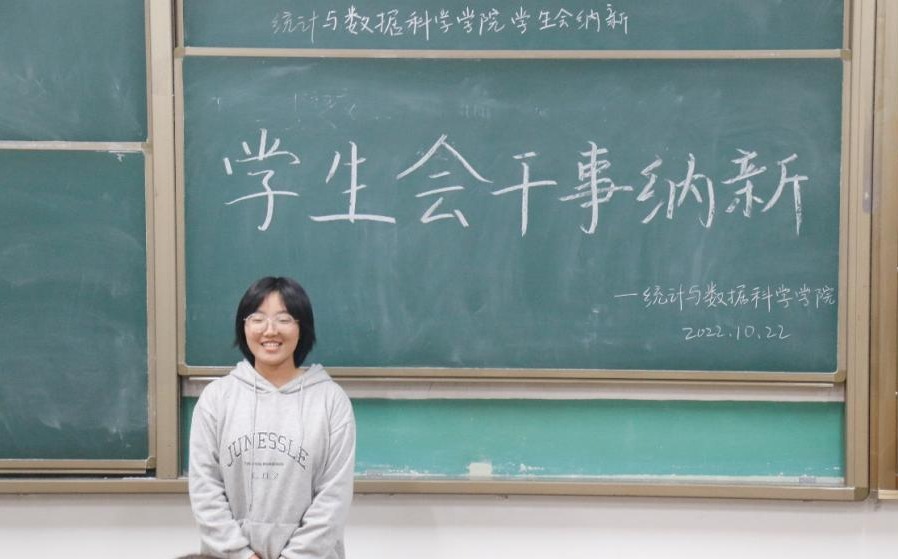 统计与数据科学学院学生会纳新
学生会干事纳新
一统计与数据科学学院
2022.10.22
JUNESSLE